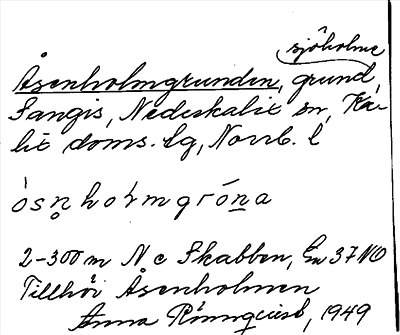 sjöholme
Åsenholmgrunden, grund,
Sangis, Nederkalix sn, Ka-
lix doms. lg, Norrb. l
ósn̥hoƚmgróna
2-300 m N c Skabben, Gn 37 NO
Tillhör Åsenholmen
Anna Rönnquist, 1949